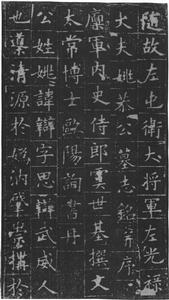 隨故左屯衛大將軍左光祿
大夫姚恭公墓志銘并序
内史侍郎虞世基撰文
太常博士歐陽詢書丹
公姓姚諱辯字思辯武威人
也導清源於媯汭肇崇構於